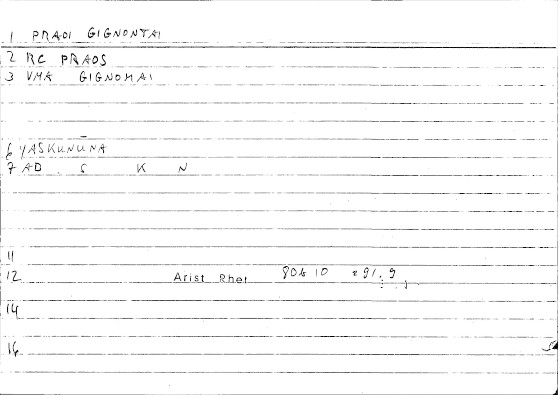 1 PRAOI GIGNONTAI
2 RC PRAOS
3 VMA GIGNOMAI
6 YASKUNUNA
7 AD . S K N
11
12 Arist Rhet 80b 10 *81.9
14
16